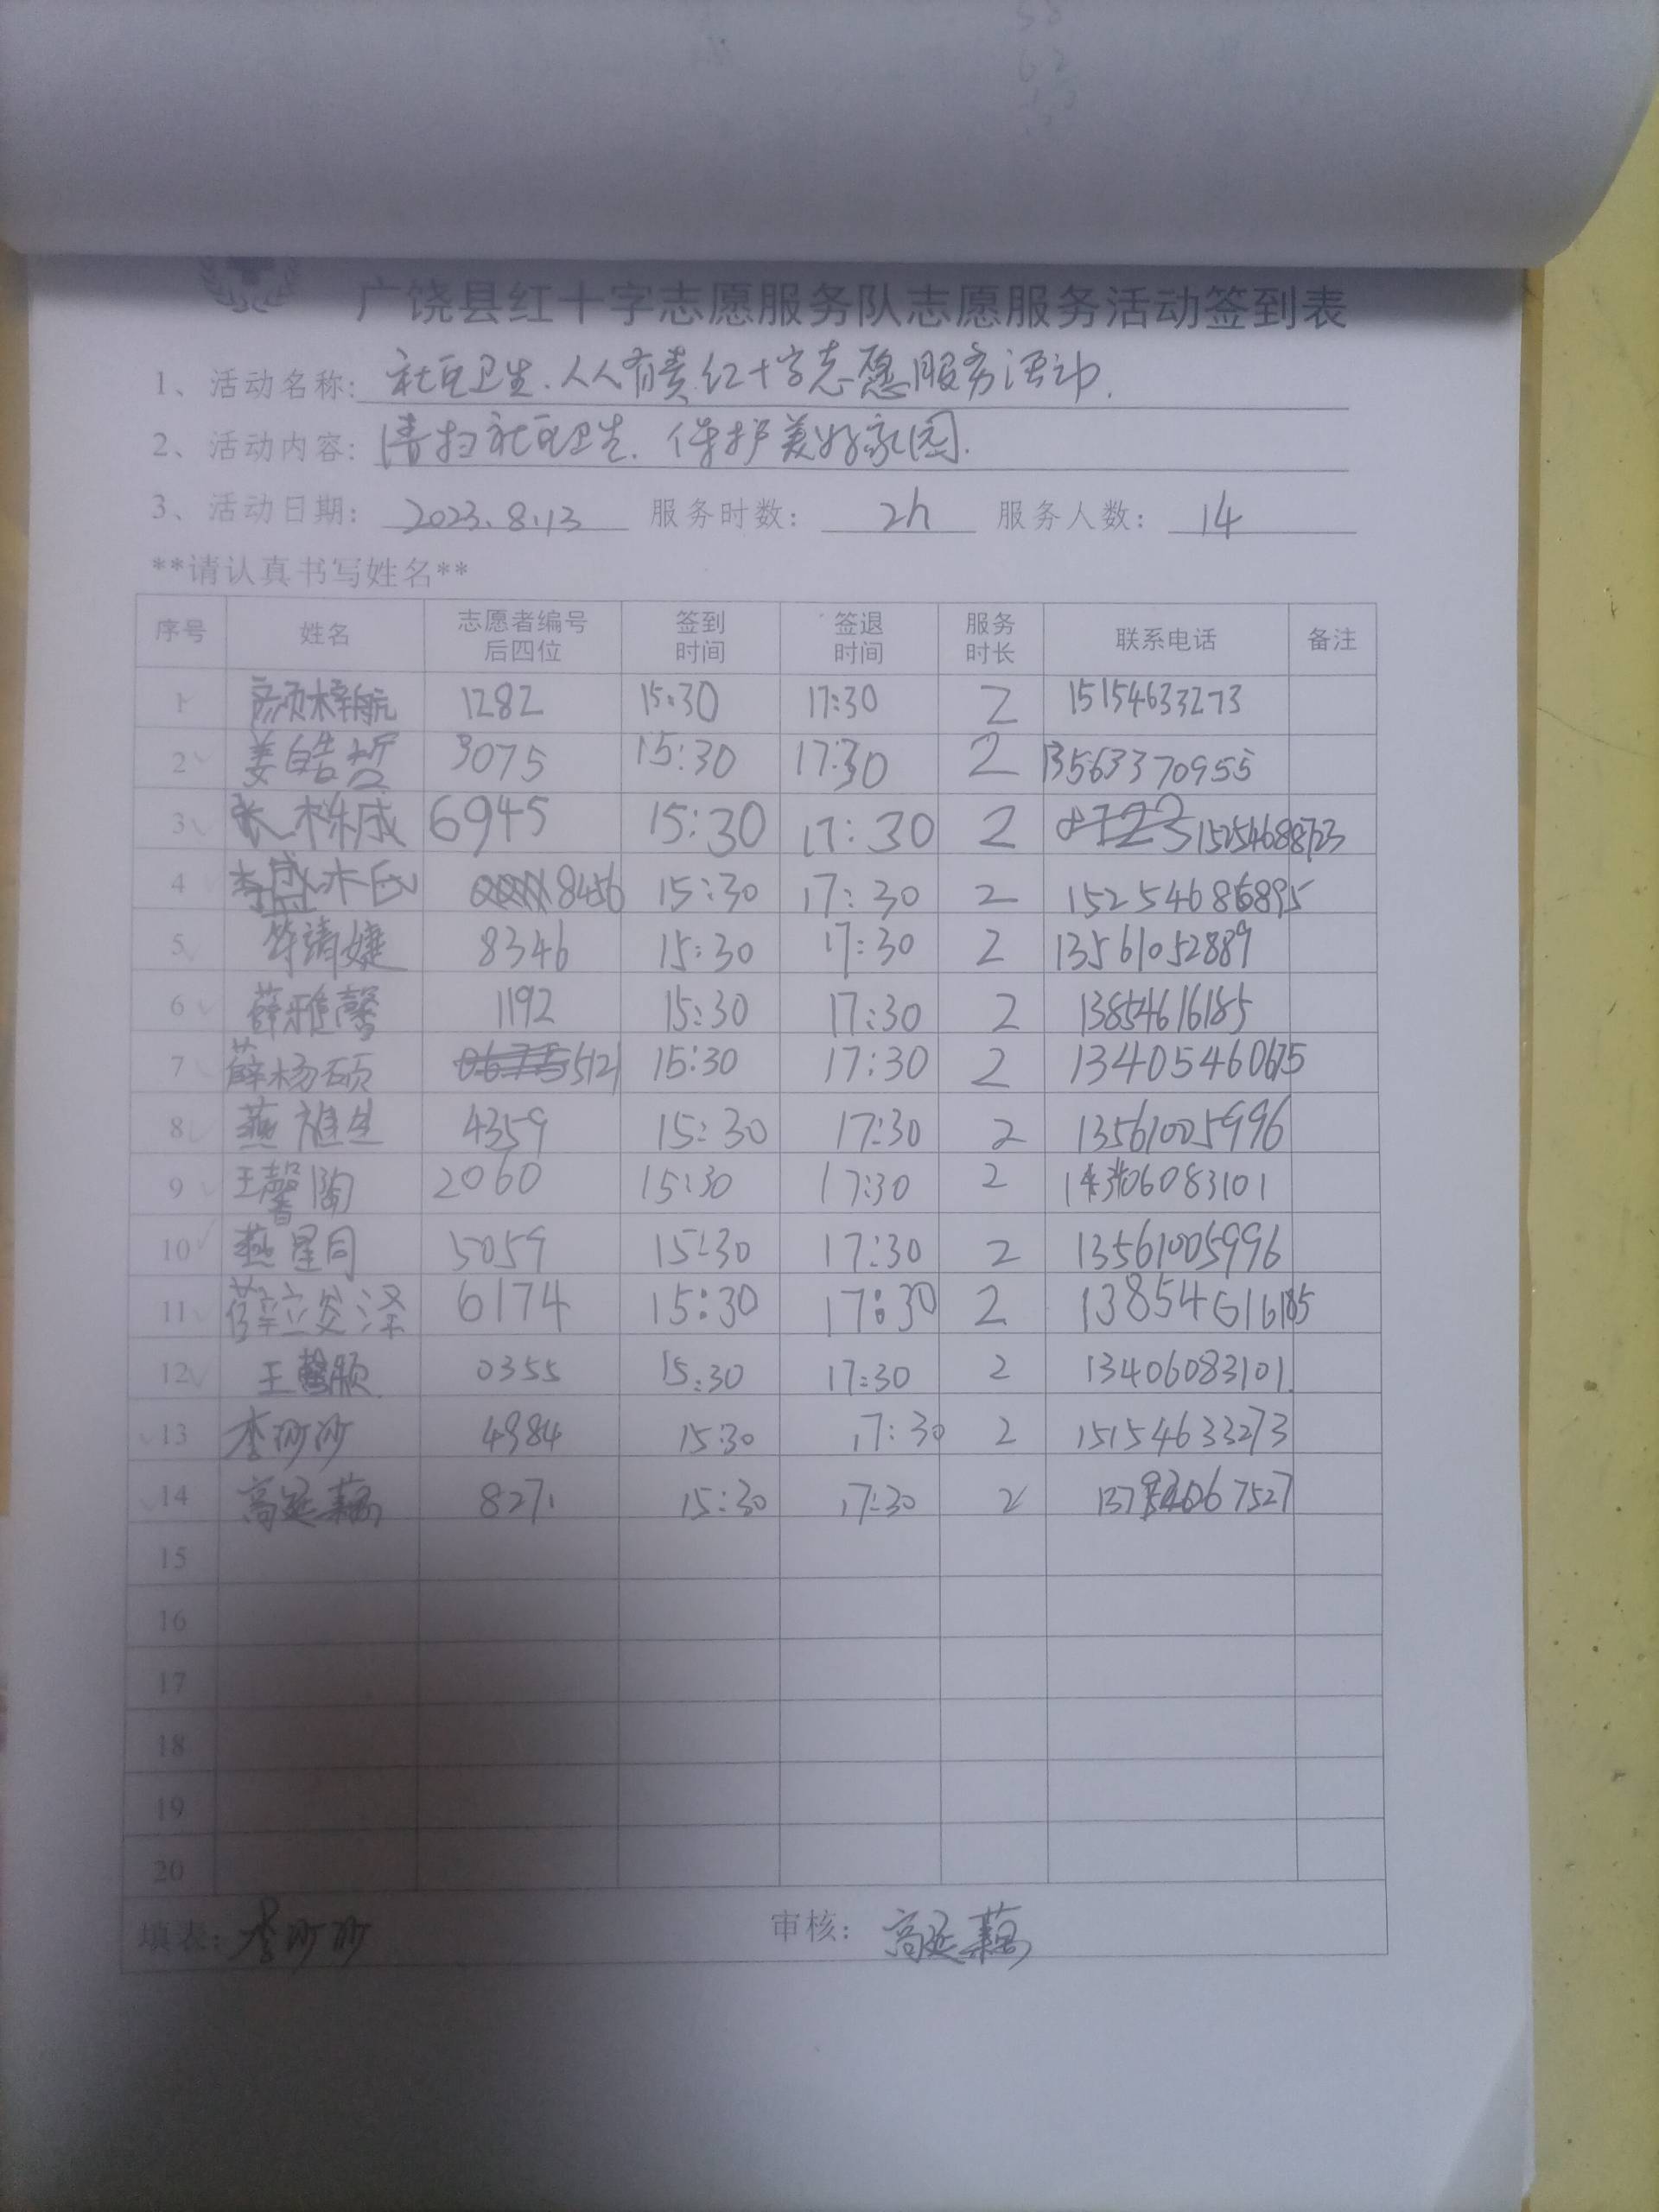 广饶县红十字志愿服务队志愿服务活动签到表
1、活动名称: 社区卫生.人人有责 红十字志愿服务活动.
2、活动内容: 清扫社区卫生. 保护美好家园.
3、活动日期: 2023.8.13 服务时数: 2h 服务人数: 14
**请认真书写姓名**
序号 姓名 志愿者编号后四位 签到时间 签退时间 服务时长 联系电话 备注
1 颜梓航 1282 15:30 17:30 2 15154633273
2 姜皓哲 3075 15:30 17:30 2 13563370955
3 张栎成 6945 15:30 17:30 2 15254688723
4 李盛 8456 15:30 17:30 2 15254686895
5 靖婕 8346 15:30 17:30 2 13561052889
6 薛雅馨 1192 15:30 17:30 2 13854616185
7 薛杨硕 5121 15:30 17:30 2 13405460675
8 燕 生 4359 15:30 17:30 2 13561005996
9 王馨陶 2060 15:30 17:30 2 13406083101
10 燕星同 5059 15:30 17:30 2 13561005996
11 薛竣泽 6174 15:30 17:30 2 13854616185
12 王馨颐 0355 15:30 17:30 2 13406083101
13 李沙沙 4984 15:30 17:30 2 15154633273
14 高延藕 8271 15:30 17:30 2
15
16
17
18
19
20
填表: 李沙沙 审核: 高延藕